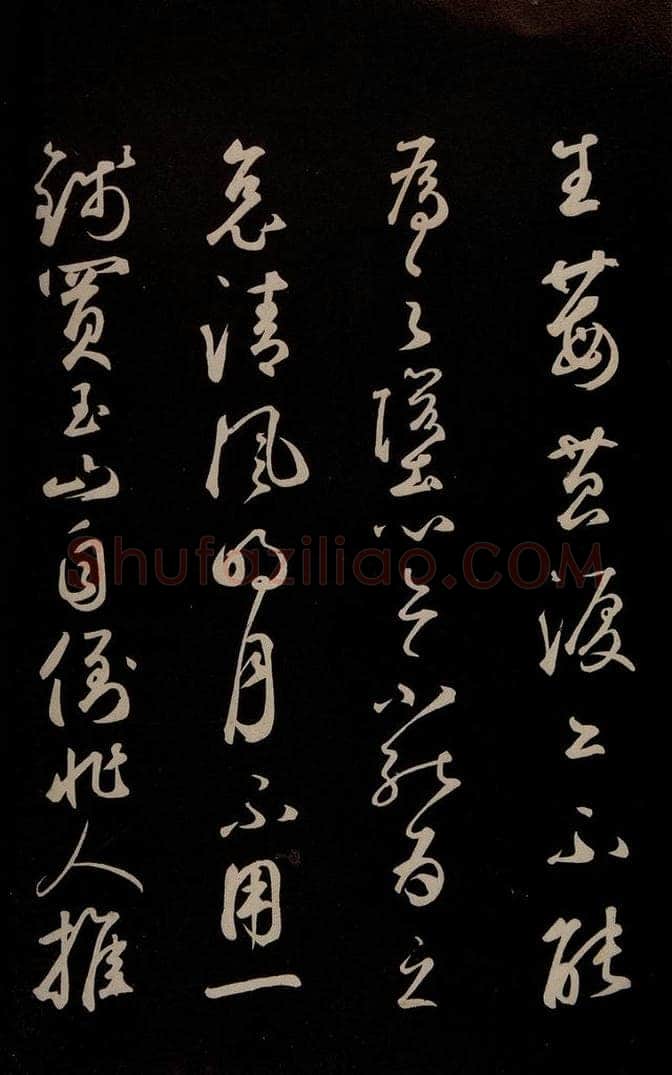 生莓苔淚亦不能
為之墮心亦不能為之
哀清風明月不用一
錢買玉山自倒非人推
Shufaziliao.COM